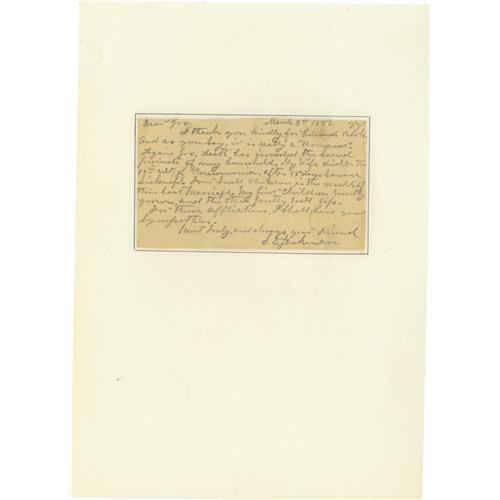 Dear Gov. March 3rd 1882
I thank you kindly for Edwards Book.
And as you say, it is really a "Romance."
Again Gov, death has invaded the sacred
precincts of my household. My Wife died on the
17th ult. of Pneumonia, after 15 days severe
sickness. Four Small Children is the result of
this last Marriage. My first Children mostly
grown and the other pretty well
For these afflictions, I shall have your
Sympathies.
Most Truly, and always your friend